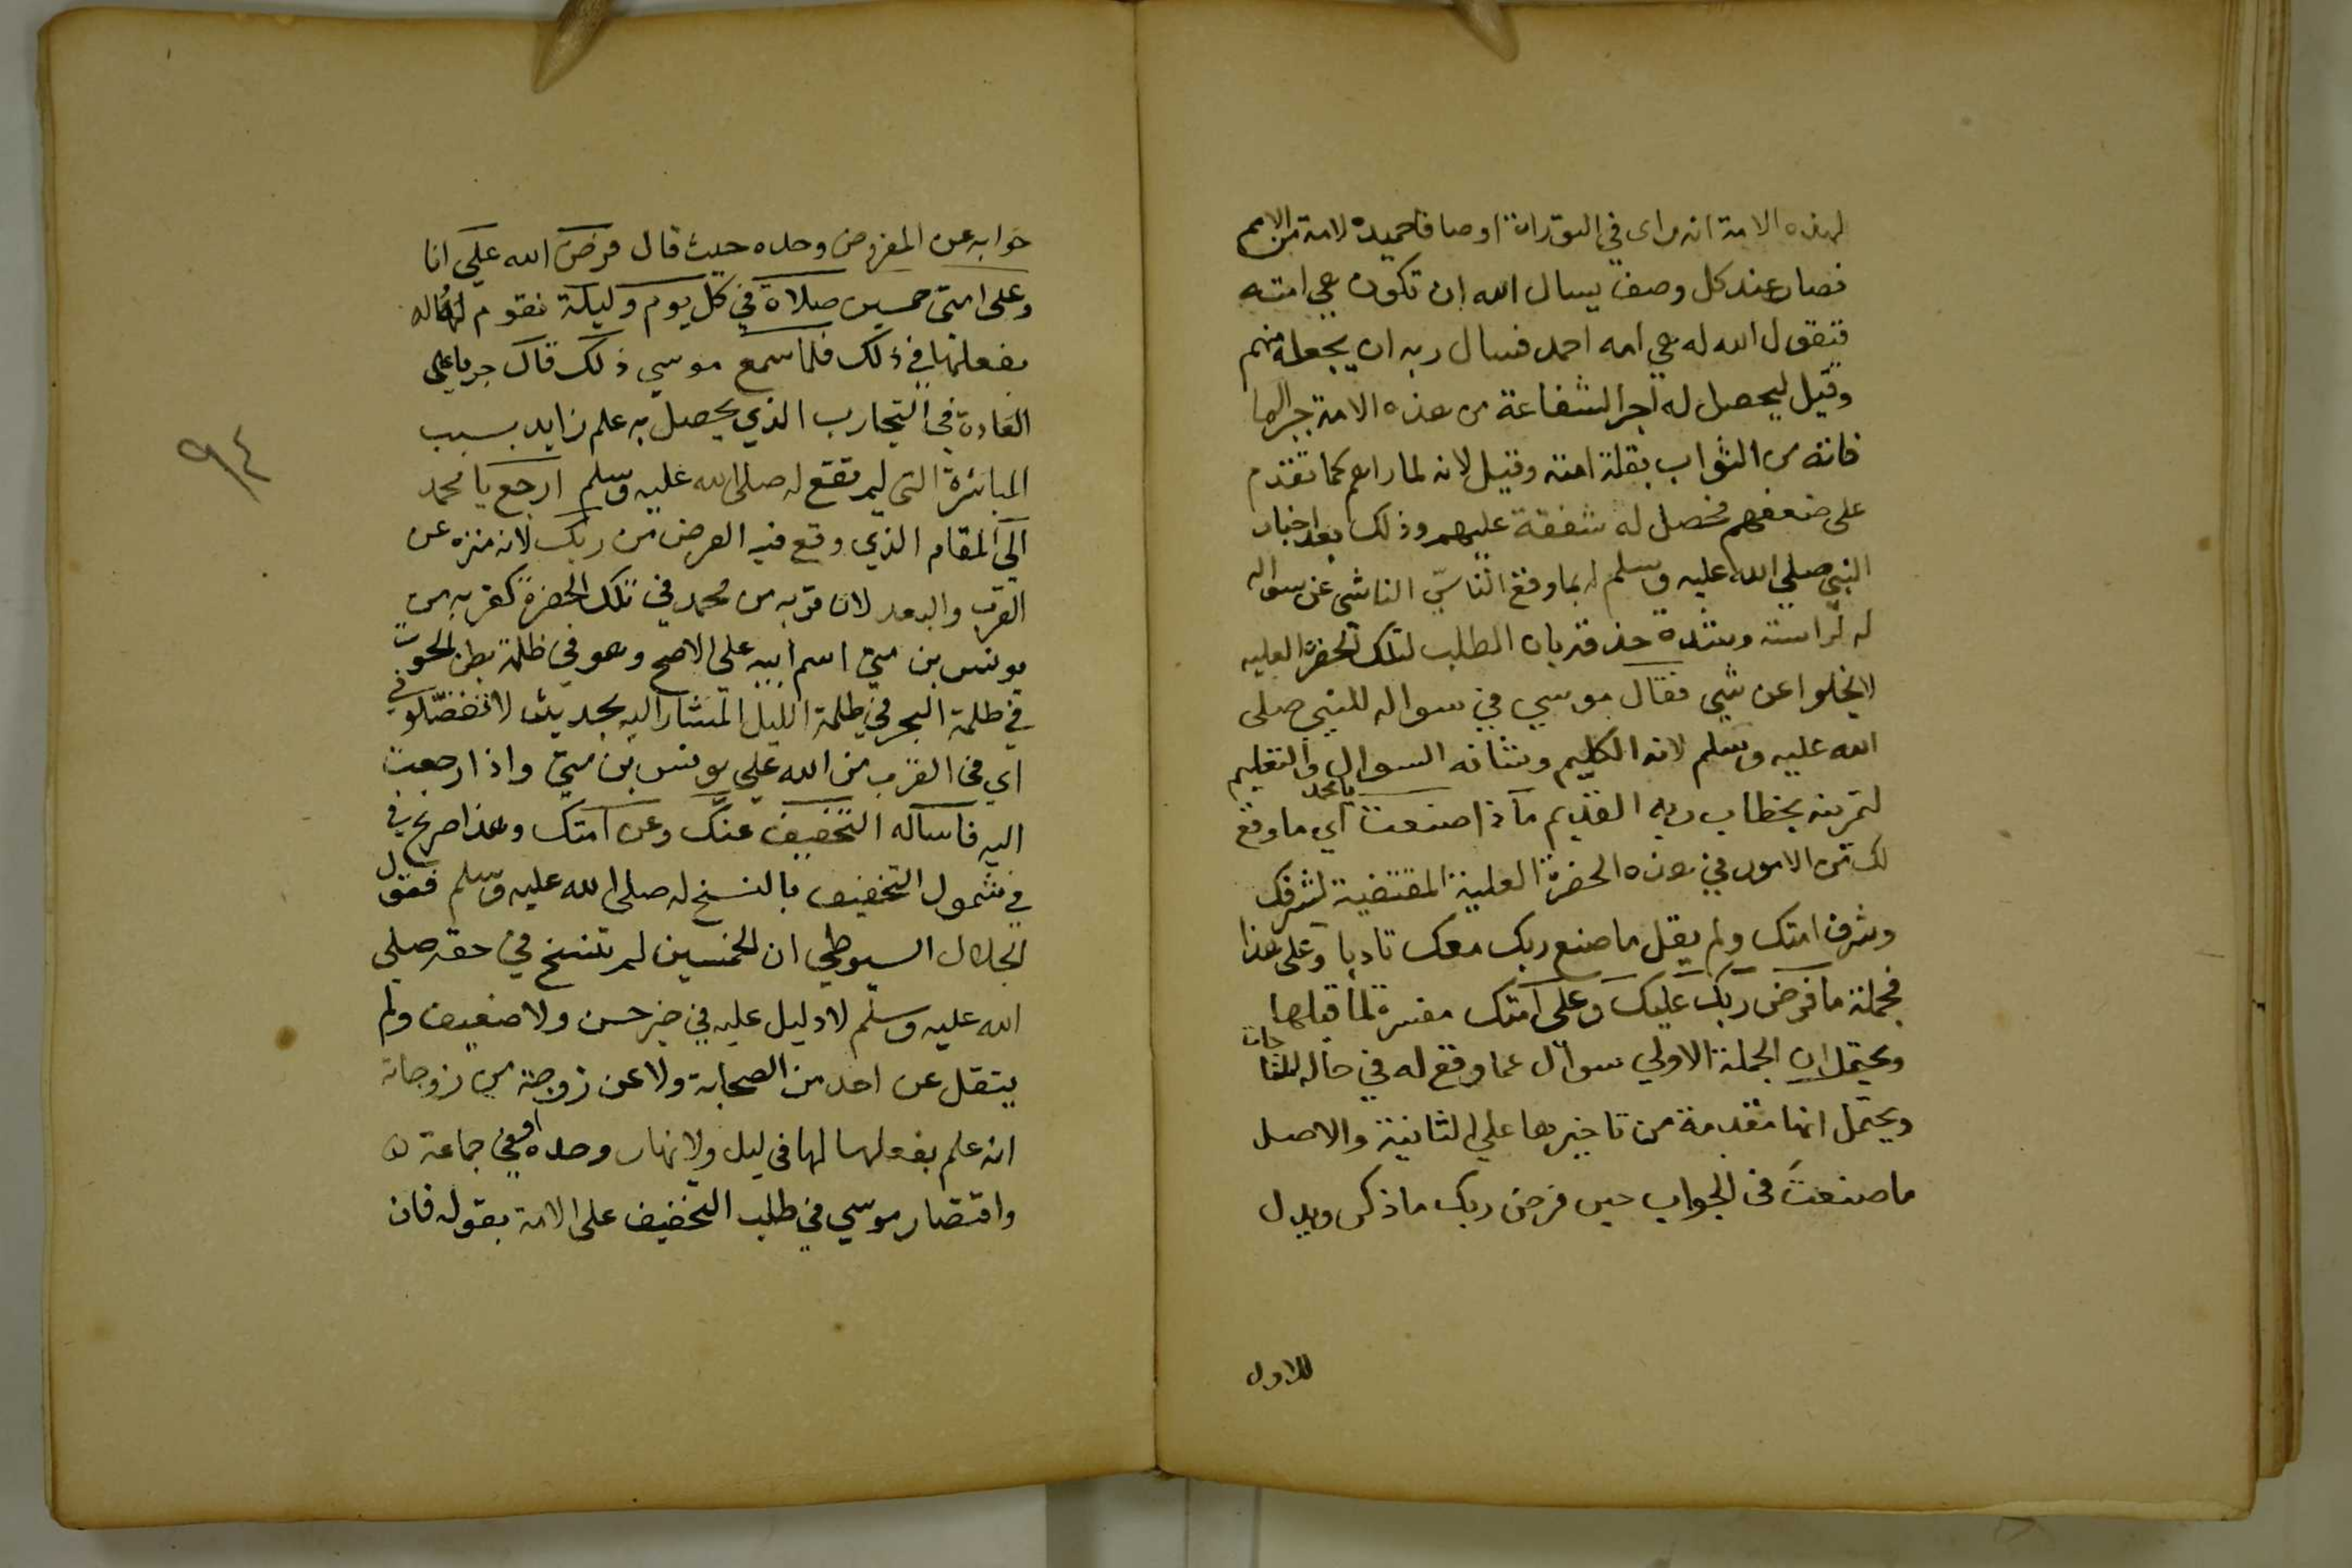 لهذه الامة انه راى في التوراة اوصافا حميدة لامة من الامم
فصار عند كل وصف يسال الله ان تكون هي امته
فتقول الله له هي امه احمد فسال ربه ان يجعله منهم
وقيل ليحصل له اجر الشفاعة من هذه الامة جبرا لما
فاته من الثواب بقلة امته وقيل لانه لما راهم كما تقدم
على ضعفهم فحصل له شفقة عليهم وذلك بعد اخبار
النبي صلي الله عليه وسلم له بما وقع الناشي عن سواله
له لراسته وشدة حذقه بان الطلب لتلك الحضرة العليه
لا يخلوا عن شي فقال موسي في سواله للنبي صلى
الله عليه وسلم لانه الكليم وشانه السوال والتعليم
لتمرينه بخطاب ربه القديم ماذا صنعت يا محمد اي ما وقع
لك من الامور في هذه الحضرة العلية المقتضية لشرفك
وشرف امتك ولم يقل ما صنع ربك معك تادبا وعلى هذا
فجملة ما فرض ربك عليك وعلى امتك مفسرة لما قبلها
ويحتمل ان الجملة الاولي سوال عما وقع له في حاله
ويحتمل انها مقدمة من تاخيرها علي الثانية والاصل
ما صنعت في الجواب حين فرض ربك ما ذكر ويدل
للاول
جوابه عن المفروض وحده حيث قال فرض الله علي انا
وعلى امتي خمسين صلاة في كل يوم وليلة نقوم
بفعلها في ذلك فلما سمع موسي ذلك قال جريا على
العادة في التجارب الذي يحصل به علم زايد بسبب
المباشرة التي لم تقع له صلى الله عليه وسلم ارجع يا محمد
الي المقام الذي وقع فيه الفرض من ربك لانه منزه عن
القرب والبعد لان قربه من محمد في تلك الحضرة كقربه من
يونس بن متي اسم ابيه علي الاصح وهو في ظلمة بطن الحوت
في ظلمة البحر في ظلمة الليل المشار اليه بحديث لا تفضلوني
اي في القرب من الله علي يونس بن متي واذا رجعت
اليه فاساله التخفيف عنك وعن امتك وهذا صريح في
في شمول التخفيف بالنسخ له صلى الله عليه وسلم فقول
الجلال السيوطي ان الخمسين لم تنسخ في حقه صلي
الله عليه وسلم لا دليل عليه في خبر حسن ولا ضعيف ولم
ينقل عن احد من الصحابة ولا عن زوجة من زوجاته
انه علم بفعلها لها في ليل ولا نهار وحده او في جماعة
واقتصار موسي في طلب التخفيف على الامة بقوله فان
٩٤